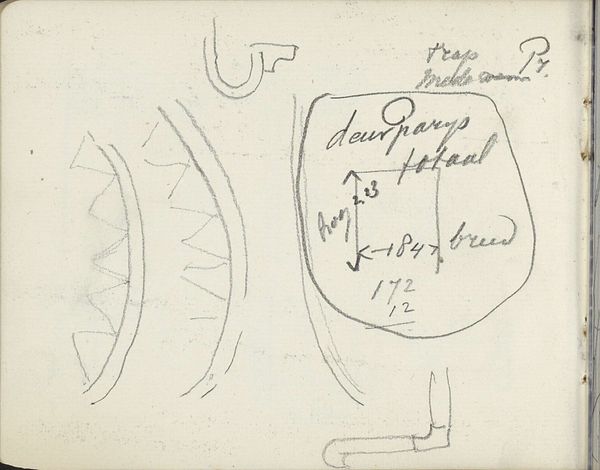 trap
Py.
deur parys
totaal
hoog 2.23
184 breed
172
12